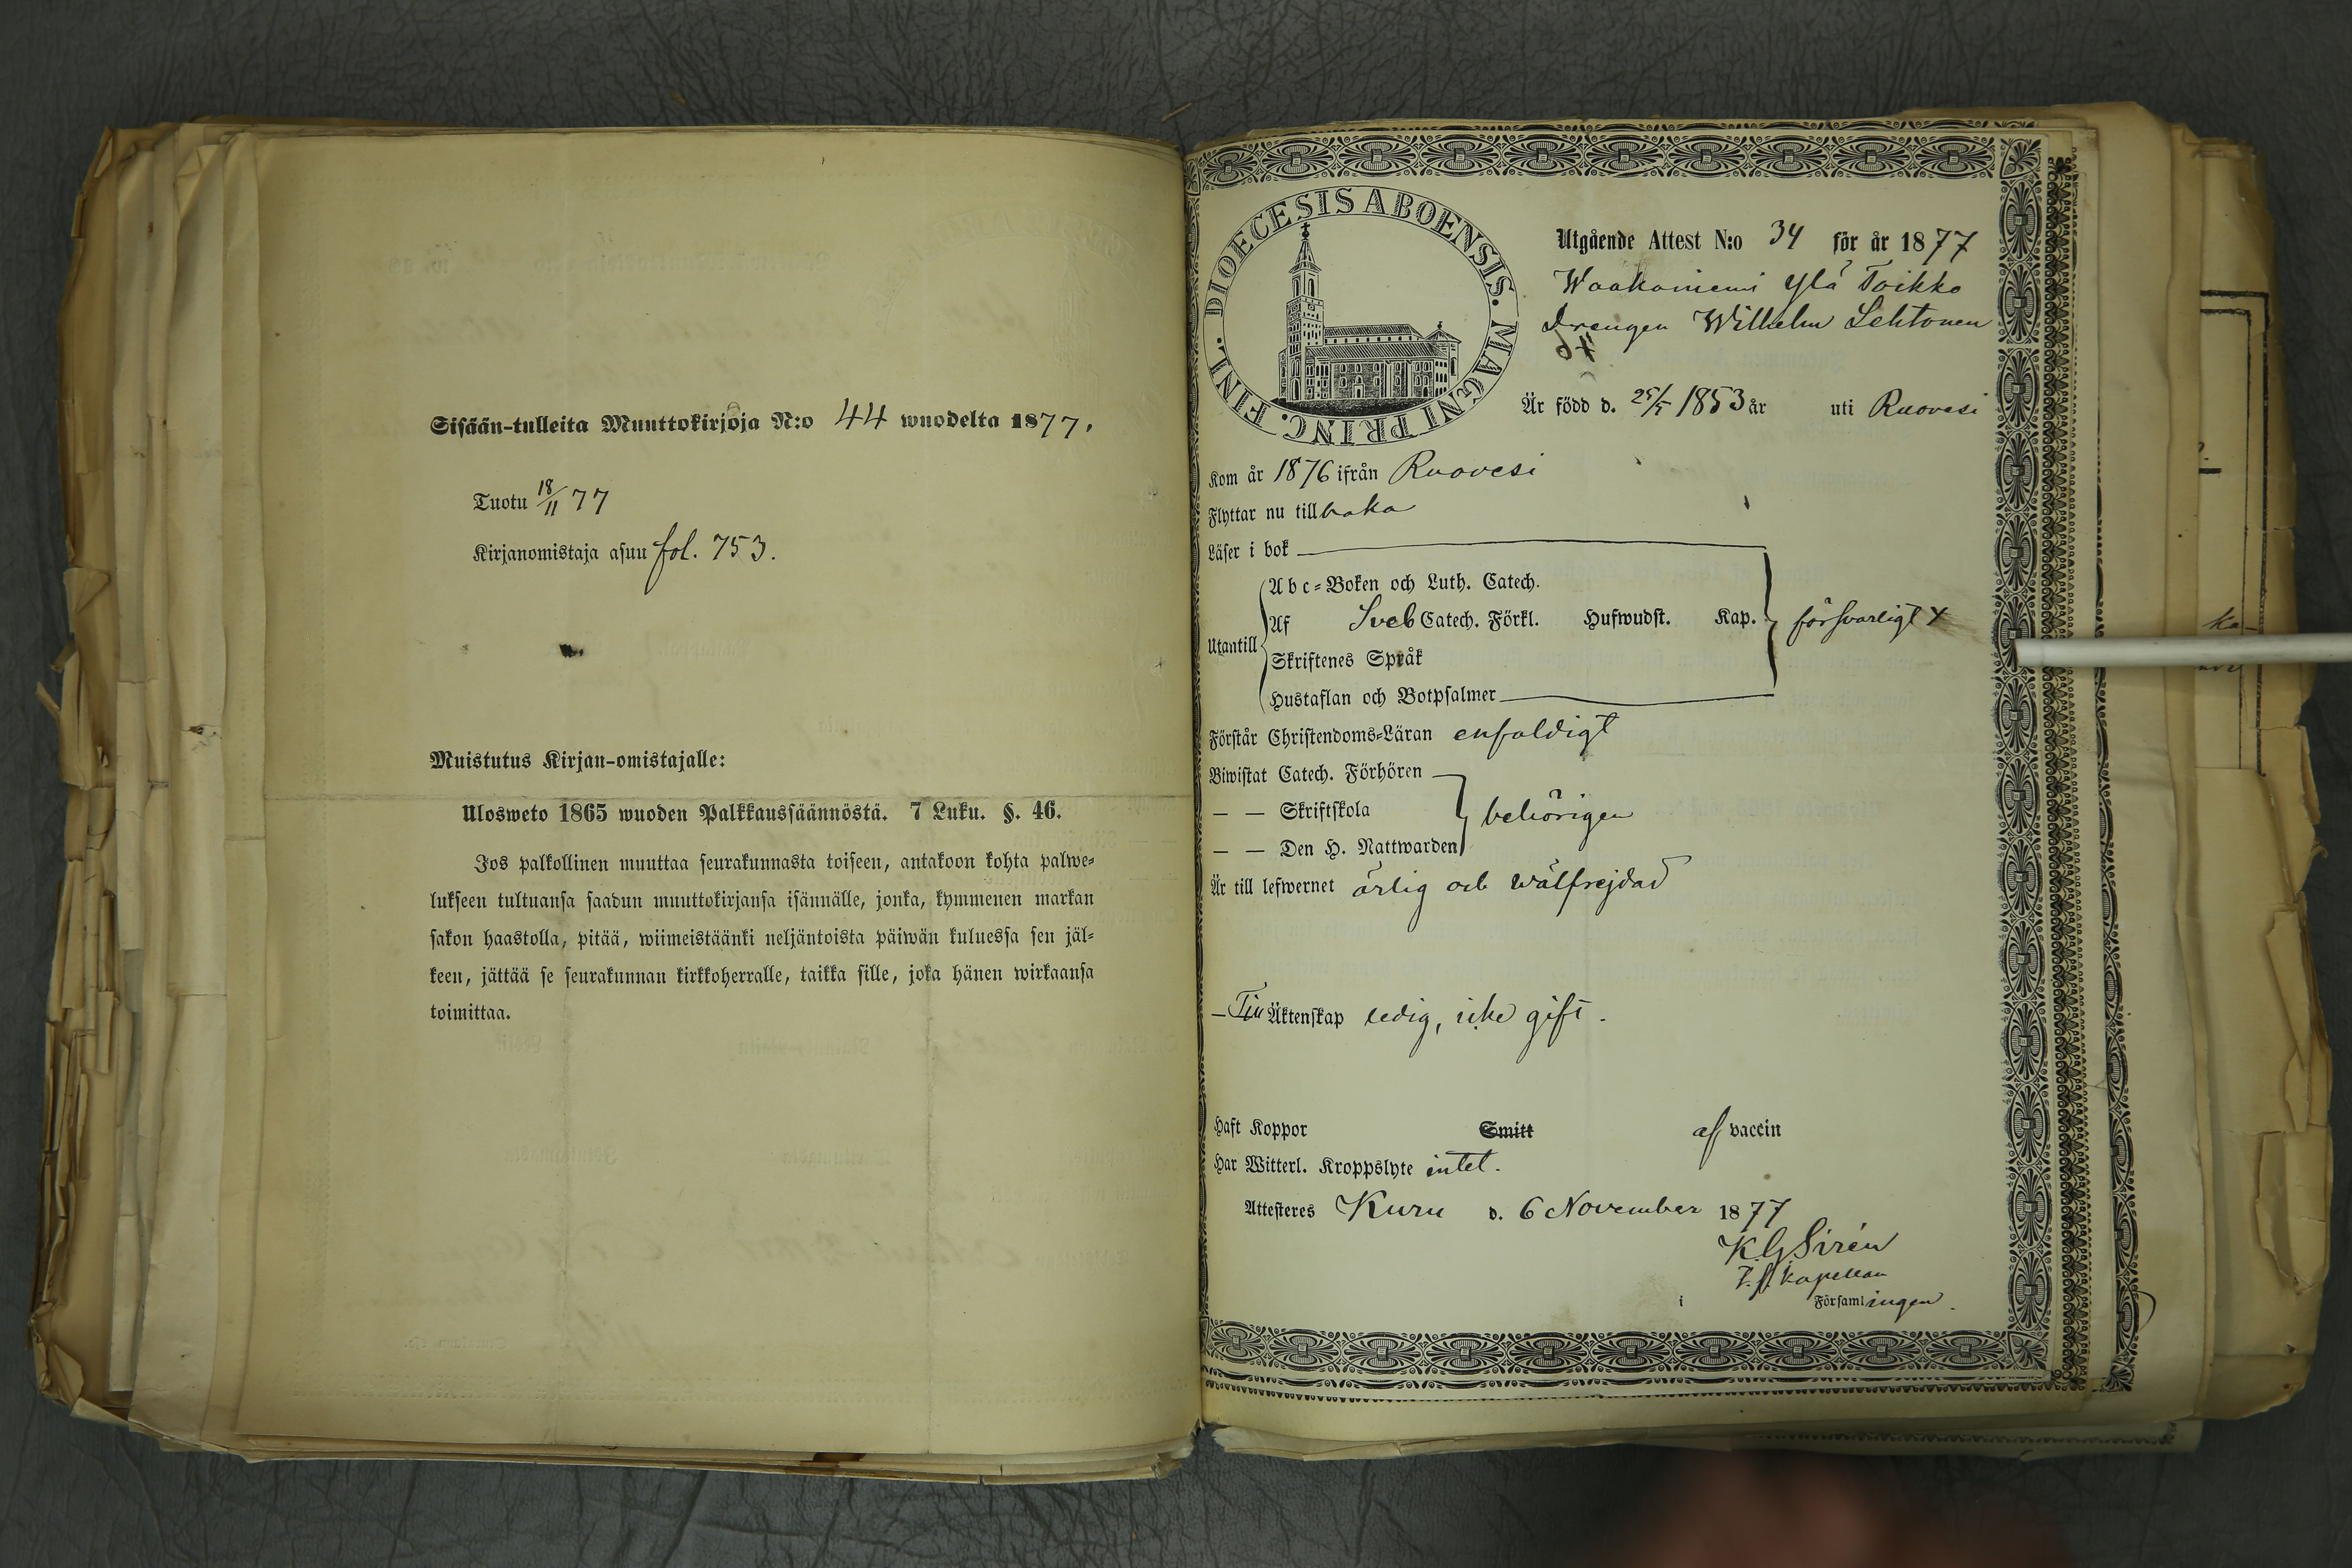 Sisään-tulleita Muuttokirjoja N:o 44 wuodelta 1877.
Tuotu 18/11 77
Kirjanomistaja asuu fol. 753.
Muistutus Kirjan-omistajalle:
Ulosweto 1865 wuoden Palkkaussäännöstä. 7 Luku. §. 46.
Jos palkollinen muuttaa seurakunnasta toiseen, antakoon kohta palwe-
lukseen tultuansa saadun muuttokirjansa isännälle, jonka, kymmenen markan
sakon haastolla, pitää, wiimeistäänki neljäntoista päiwän kuluessa sen jäl-
keen, jättää se seurakunnan kirkkoherralle, taikka sille, joka hänen wirkaansa
toimittaa.
DIOECESIS ABOENSIS. MAGNI PRINC. FINL.
Utgående Attest N:o 34 för år 1877
Waakaniemi Ylä Toikko
Drengen Wilhelm Lehtonen
Är född d. 25/5 1853 år uti Ruovesi
Kom år 1876 ifrån Ruovesi
Flyttar nu tillbaka
Läser i bok
Utantill
Abc-Boken och Luth. Catech.
Af Sveb Catech. Förkl. Hufwudst. Kap. försvarligt x
Skriftenes Språk
Hustaflan och Botpsalmer
Förstår Christendoms-Läran enfaldigt
Biwistat Catech. Förhören
— — Skriftskola behörigen
— — Den H. Nattwarden
Är till lefwernet ärlig och wälfrejdad
— Till Äktenskap ledig, icke gift.
Haft Koppor Smitt af vaccin
Har Witterl. Kroppslyte intet.
Attesteres Kuru d. 6 November 1877
K G Sirén
V. f. kapellan
i Församlingen.